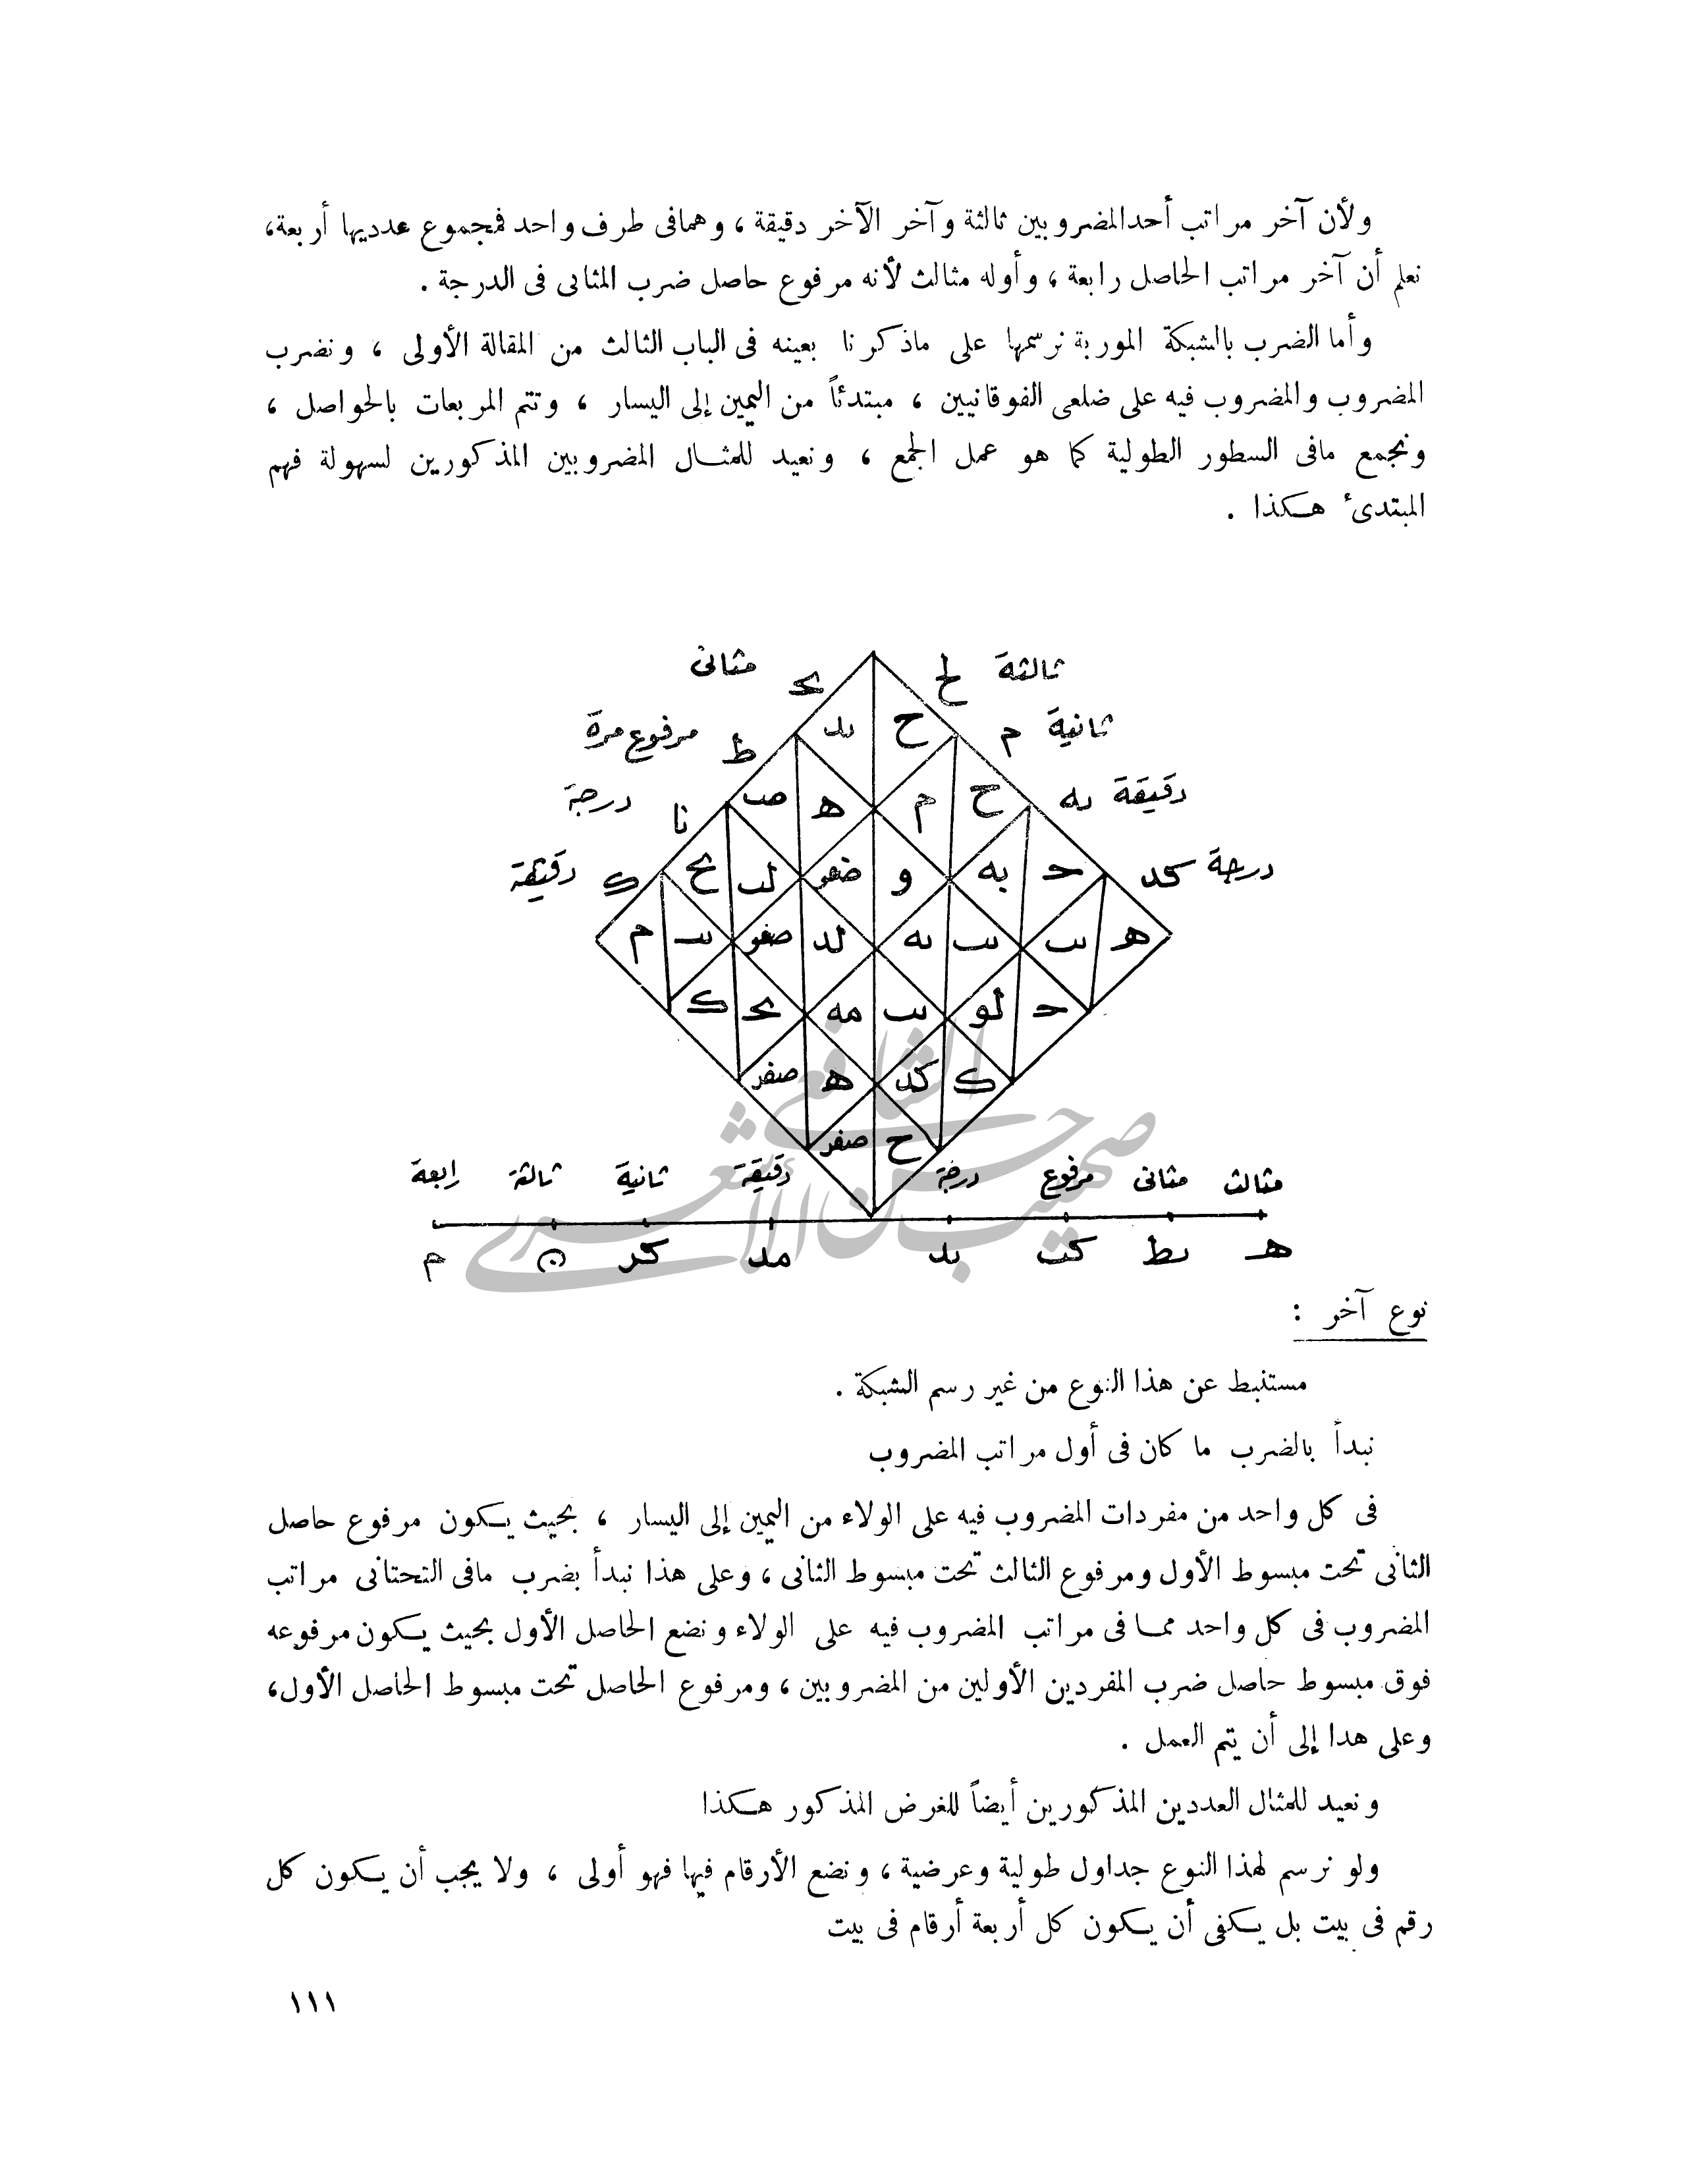 ولأن آخر مراتب أحد المضروبين ثالثة وآخر الآخر دقيقة ، وهما فى طرف واحد فمجموع عدديها أربعة،
نعلم أن آخر مراتب الحاصل رابعة ، وأوله مثالث لأنه مرفوع حاصل ضرب المثانى فى الدرجة .
وأما الضرب بالشبكة الموربة نرسمها على ماذكرنا بعينه فى الباب الثالث من المقالة الأولى ، ونضرب
المضروب والمضروب فيه على ضلعى الفوقانيين ، مبتدئاً من اليمين إلى اليسار ، وتتم المربعات بالحواصل ،
ونجمع مافى السطور الطولية كما هو عمل الجمع ، ونعيد للمثال المضروبين المذكورين لسهولة فهم
المبتدىء هكذا .
ثالثة لح مثانى
ثانية م ط مرفوع مرة
دقيقة نا درجة
درجة كد ك دقيقة
مثالث مثانى مرفوع درجة دقيقة ثانية ثالثة رابعة
نوع آخر :
مستنبط عن هذا النوع من غير رسم الشبكة .
نبدأ بالضرب ما كان فى أول مراتب المضروب
فى كل واحد من مفردات المضروب فيه على الولاء من اليمين إلى اليسار ، بحيث يكون مرفوع حاصل
الثانى تحت مبسوط الأول ومرفوع الثالث تحت مبسوط الثانى ، وعلى هذا نبدأ بضرب مافى التحتانى مراتب
المضروب فى كل واحد مما فى مراتب المضروب فيه على الولاء ونضع الحاصل الأول بحيث يكون مرفوعه
فوق مبسوط حاصل ضرب المفردين الأولين من المضروبين ، ومرفوع الحاصل تحت مبسوط الحاصل الأول،
وعلى هدا إلى أن يتم العمل .
ونعيد للمثال العددين المذكورين أيضاً للغرض المذكور هكذا
ولو نرسم لهذا النوع جداول طولية وعرضية ، ونضع الأرقام فيها فهو أولى ، ولا يجب أن يكون كل
رقم فى بيت بل يكفى أن يكون كل أربعة أرقام فى بيت
١١١